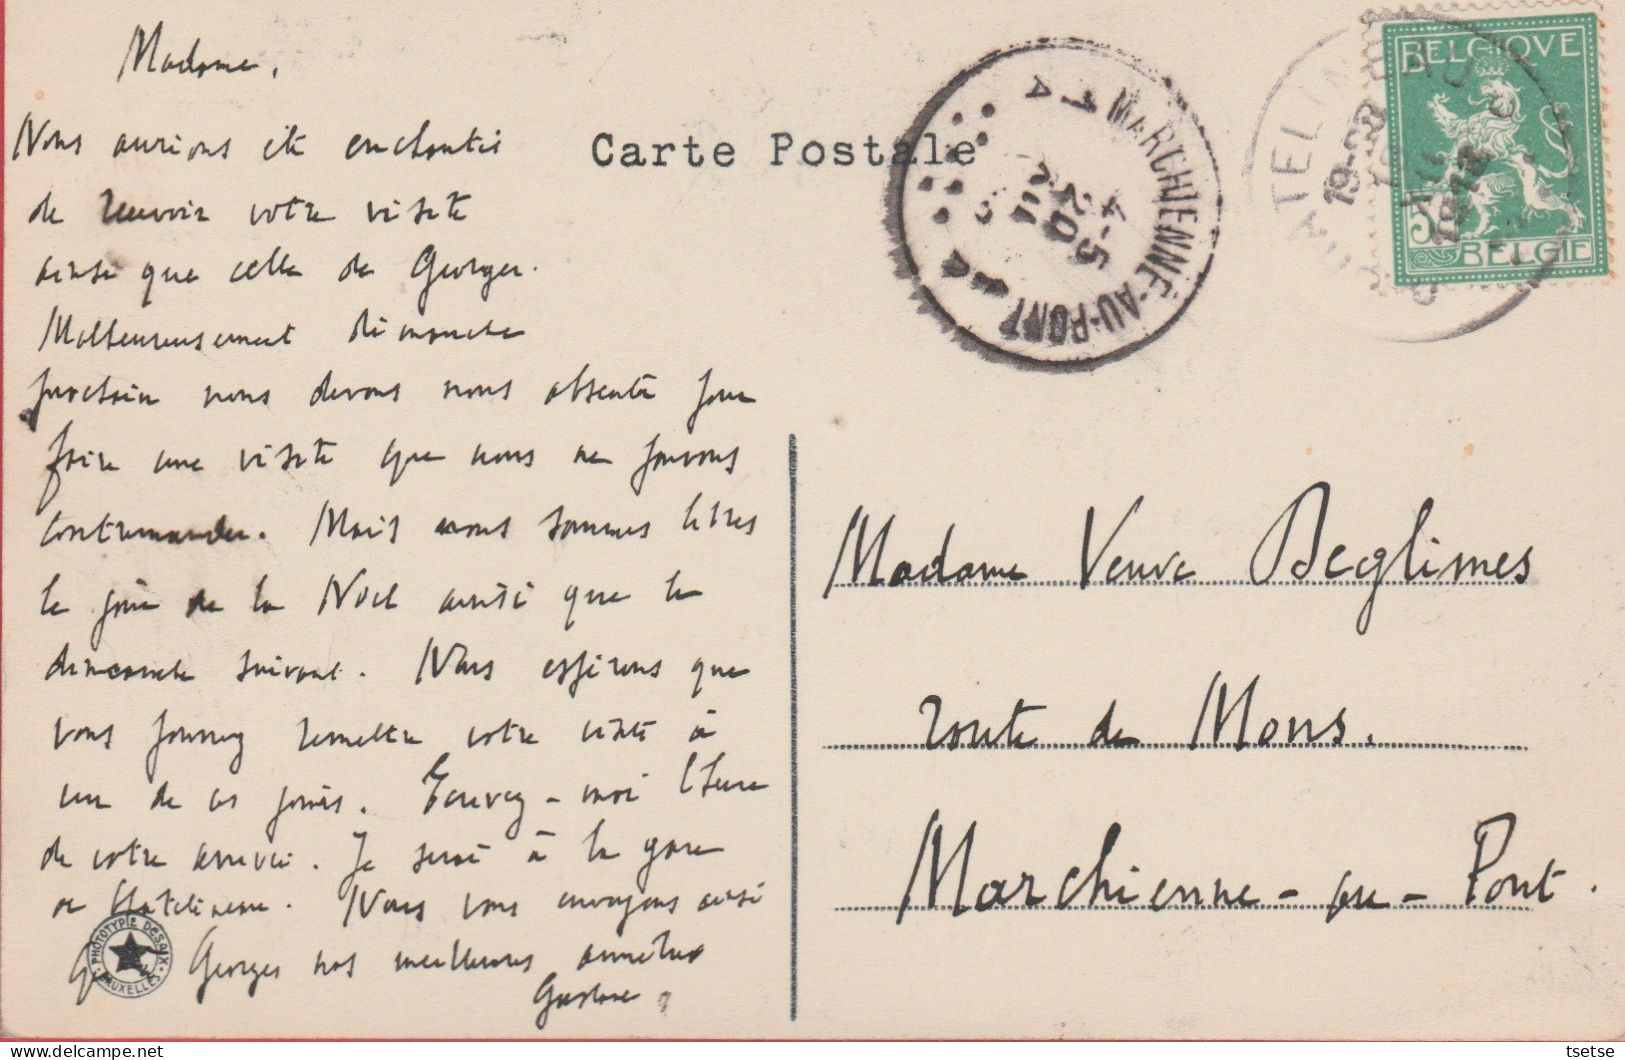 Madame,
Nous aurions été enchantés
de recevoir votre visite
ainsi que celle de Georges.
Malheureusement dimanche
prochain nous devons nous absenter pour
faire une visite que nous ne pouvons
contremander. Mais nous sommes libres
le jour de la Noël ainsi que le
dimanche suivant. Nous espérons que
vous pourrez remettre votre visite à
un de ces jours. Ecrivez-moi l'heure
de votre arrivée. Je serai à la gare
de Chatelineau. Nous vous envoyons ainsi
Georges nos meilleures amitiés
Gustave.
PHOTOTYPIE DESAIX
BRUXELLES
Carte Postale
MARCHIENNE-AU-PONT
4-5
20
BELGIQUE
5
BELGIË
CHATELINEAU
Madame Veuve Beglimes
route de Mons.
Marchienne-au-Pont.
tsetse